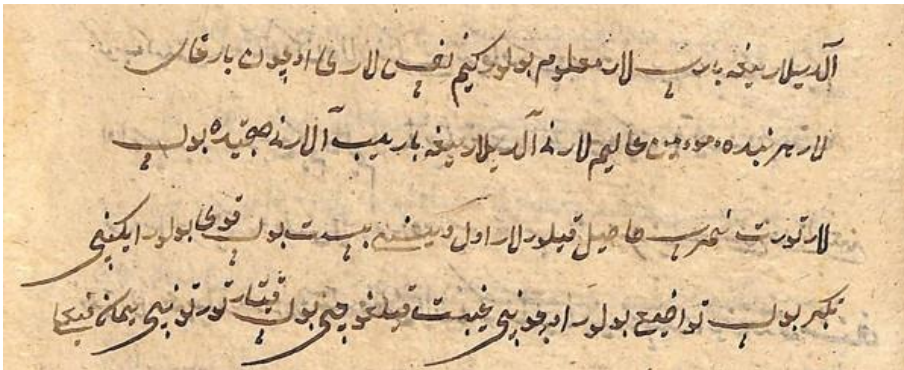 آلدیلاریغه بارسه لار معلوم بولور کیم نفس لاری اوچون بارغان
لار هر بنده مؤمین عالیم لارنی آلدیلاریغه باریب آلارنی صحبتیده بولسه
لار تورت نمرسه حاصیل قیلور لار اول سست بولسه قوی بولور ایکینچی
تکبر بولسه تواضیع بولور اوچونچی غیبت قیلغوچی بولسه قیتار تورتونچی